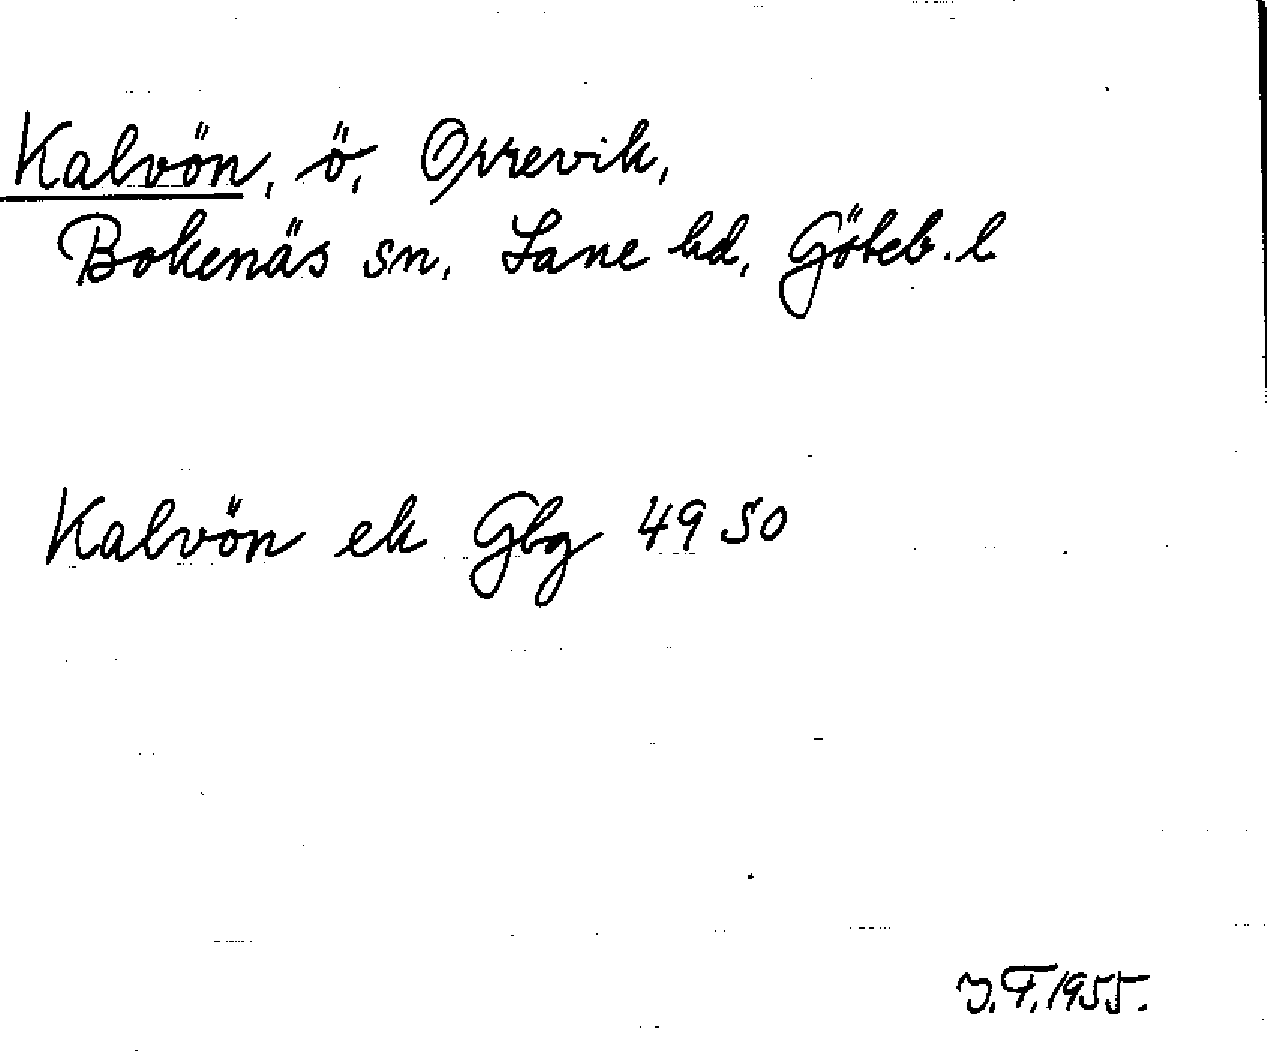 Kalvön, ö, Orrevik,
Bokenäs sn, Lane hd, Göteb. l.
Kalvön ek Gbg 49 50
J.F. 1955.